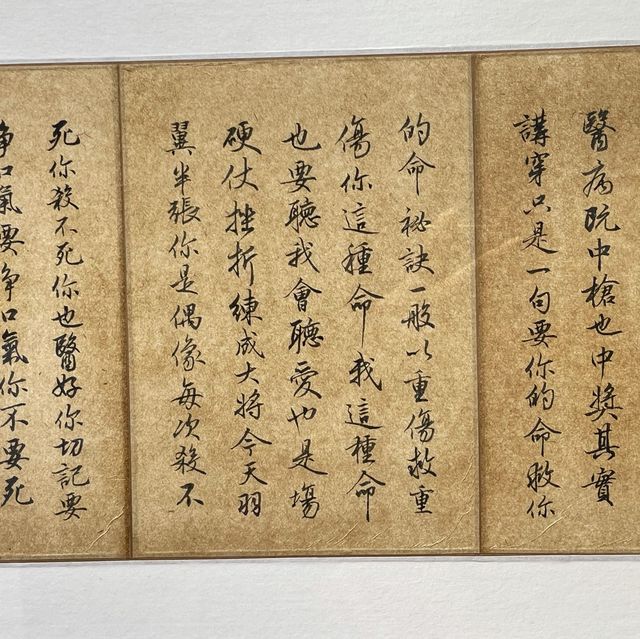 醫病既中槍也中獎其實
講穿只是一句要你的命救你
的命秘訣一般以重傷救重
傷你這種命我這種命
也要聽我會聽愛也是場
硬仗挫折練成大將今天羽
翼半張你是偶像每次殺不
死你殺不死你也醫好你切記要
爭口氣要爭口氣你不要死